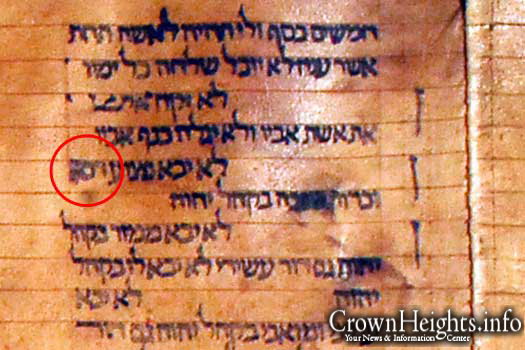 חמשים כסף ולו תהיה לאשה תחת
אשר ענה לא יוכל שלחה כל ימיו
לא יקח איש
את אשת אביו ולא יגלה כנף אביו
לא יבא פצוע דכא
וכרות בקהל יהוה
לא יבא ממזר בקהל
יהוה גם דור עשירי לא יבא לו בקהל
יהוה לא יבא
ומואבי בקהל יהוה גם דור
CrownHeights.info
Your News & Information Center